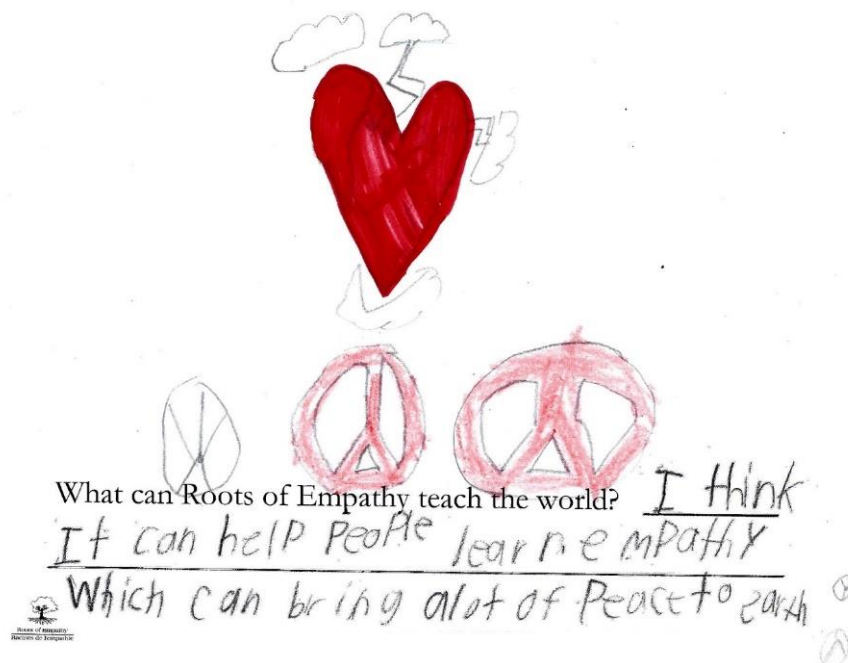 What can Roots of Empathy teach the world? I think
It can help people learn empathy
Which can bring alot of peace to earth
Roots of Empathy
Racines de l'empathie